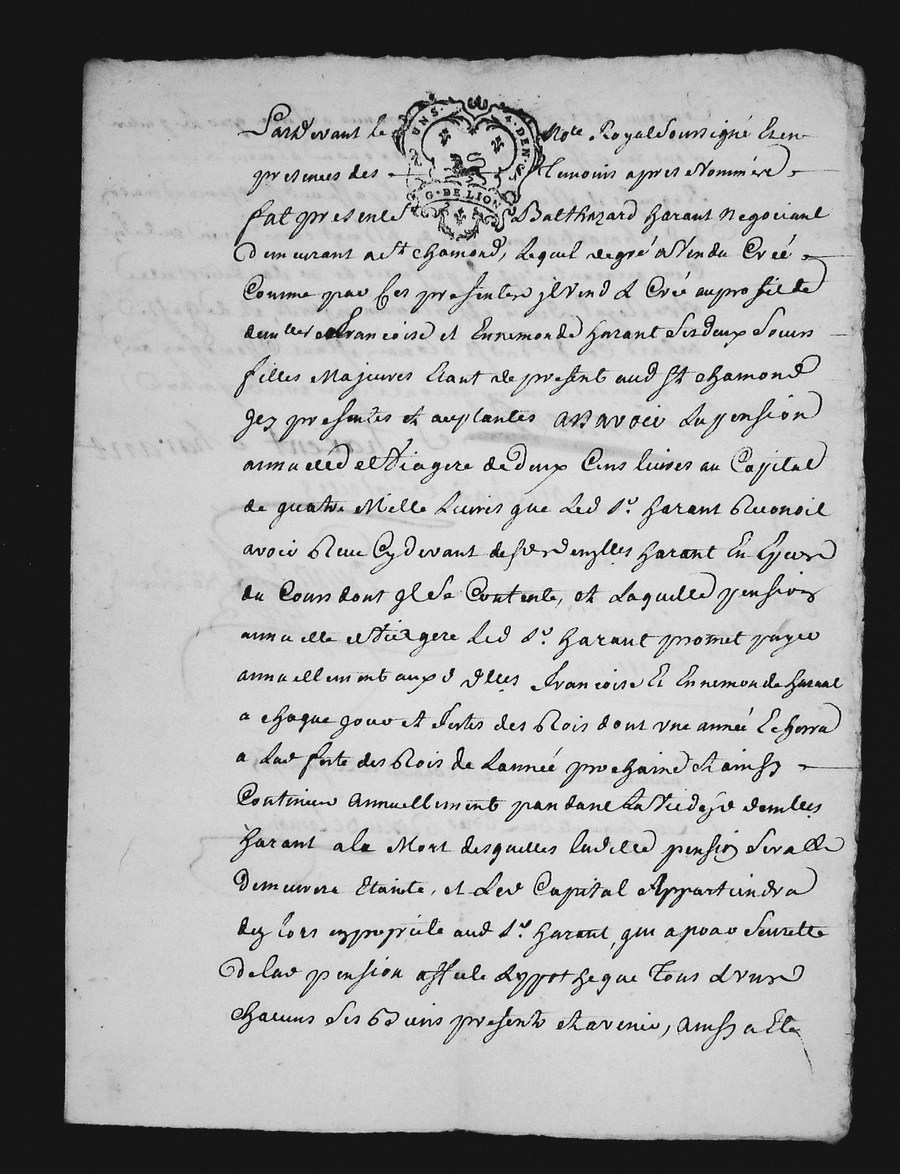 Pardevant le Note Royal Soussigné Et en
presences des Temoins apres Nommére
fut present Sr Balthazard harant Negociant
demeurant a St chamond, Lequel de gré a Vendu Créé
Comme par ses presentes jl Vend & Créé au profit de
demlles francoise et Ennemonde harant Ses deux Soeurs
filles Majeures Etant de present aud St chamond
jcy presentes et acceptantes asavoir La pension
annuelle et Viagere de deux Cens livres au Capital
de quatre Mille Livres que Led Sr. harant Reconoit
avoir Reçu Cydevant desd demlles harant En Especes
du Cours dont jl Se Contente, et Laquelle pension
annuelle et Viagere Led Sr. harant promet payer
annuellement auxd dlles francoise Et Ennemonde harant
a chaque jour et festes des Rois dont une année Echerra
a Lad feste des Rois de Lannée prochaine Et ainsy
Continuer annuellement pandant La Vie desd demlles
harant a la Mort desquelles ladille pension Sera &
demeurera Etainte, et Led Capital Appartiendra
dez lors en propriete aud Sr. harant, qui a pour Seurette
de lad pension affecté & ypotheque Tous & uns
chacuns Ses Biens presents et avenir, ainsy a Ete
UNS. 4. DEN
G. DE LION